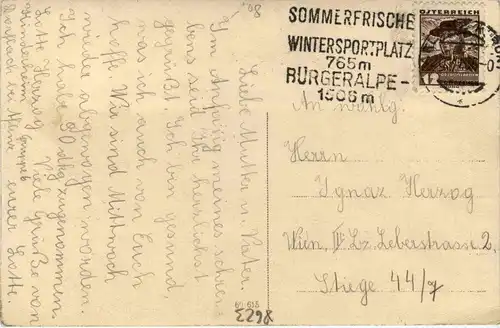 Liebe Mutter u. Vater.
Im Anfang meines schrei-
bens seid Ihr herzlichst
gegrüßt. Ich bin gesund,
was ich auch von Euch
hoffe. Wir sind Mittwoch
wieder abgewogen worden.
Ich habe 20 dkg zugenommen.
Viele Grüße von
eurer Lotte.
Lotte Herzog
Kinderheim
SOMMERFRISCHE
WINTERSPORTPLATZ
765m
BÜRGERALPE-
1506m
ÖSTERREICH
12
An wohlg:
Herrn
Ignaz Herzog
Wien, Lz. Leberstrasse 2.
Stiege 44/7
60 618
3298